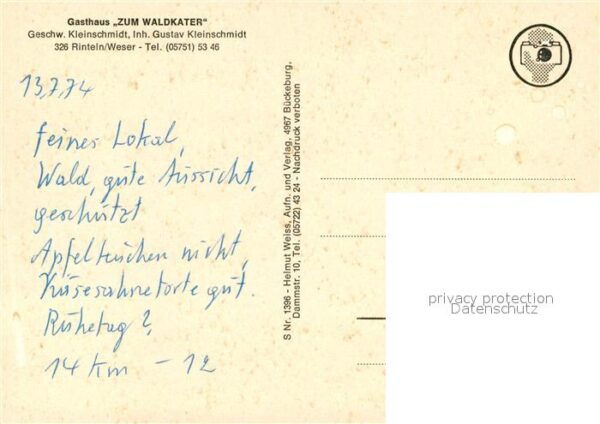 Gasthaus „ZUM WALDKATER"
Geschw. Kleinschmidt, Inh. Gustav Kleinschmidt
326 Rinteln/Weser - Tel. (05751) 53 46
13.7.74
feines Lokal,
Wald, gute Aussicht,
geschützt
Apfelkuchen nicht,
Käsesahnetorte gut.
Ruhetag?
14 Km - 12
S Nr. 1396 - Helmut Weiss, Aufn. und Verlag, 4967 Bückeburg,
Dammstr. 10, Tel. (05722) 43 24 - Nachdruck verboten
privacy protection
Datenschutz